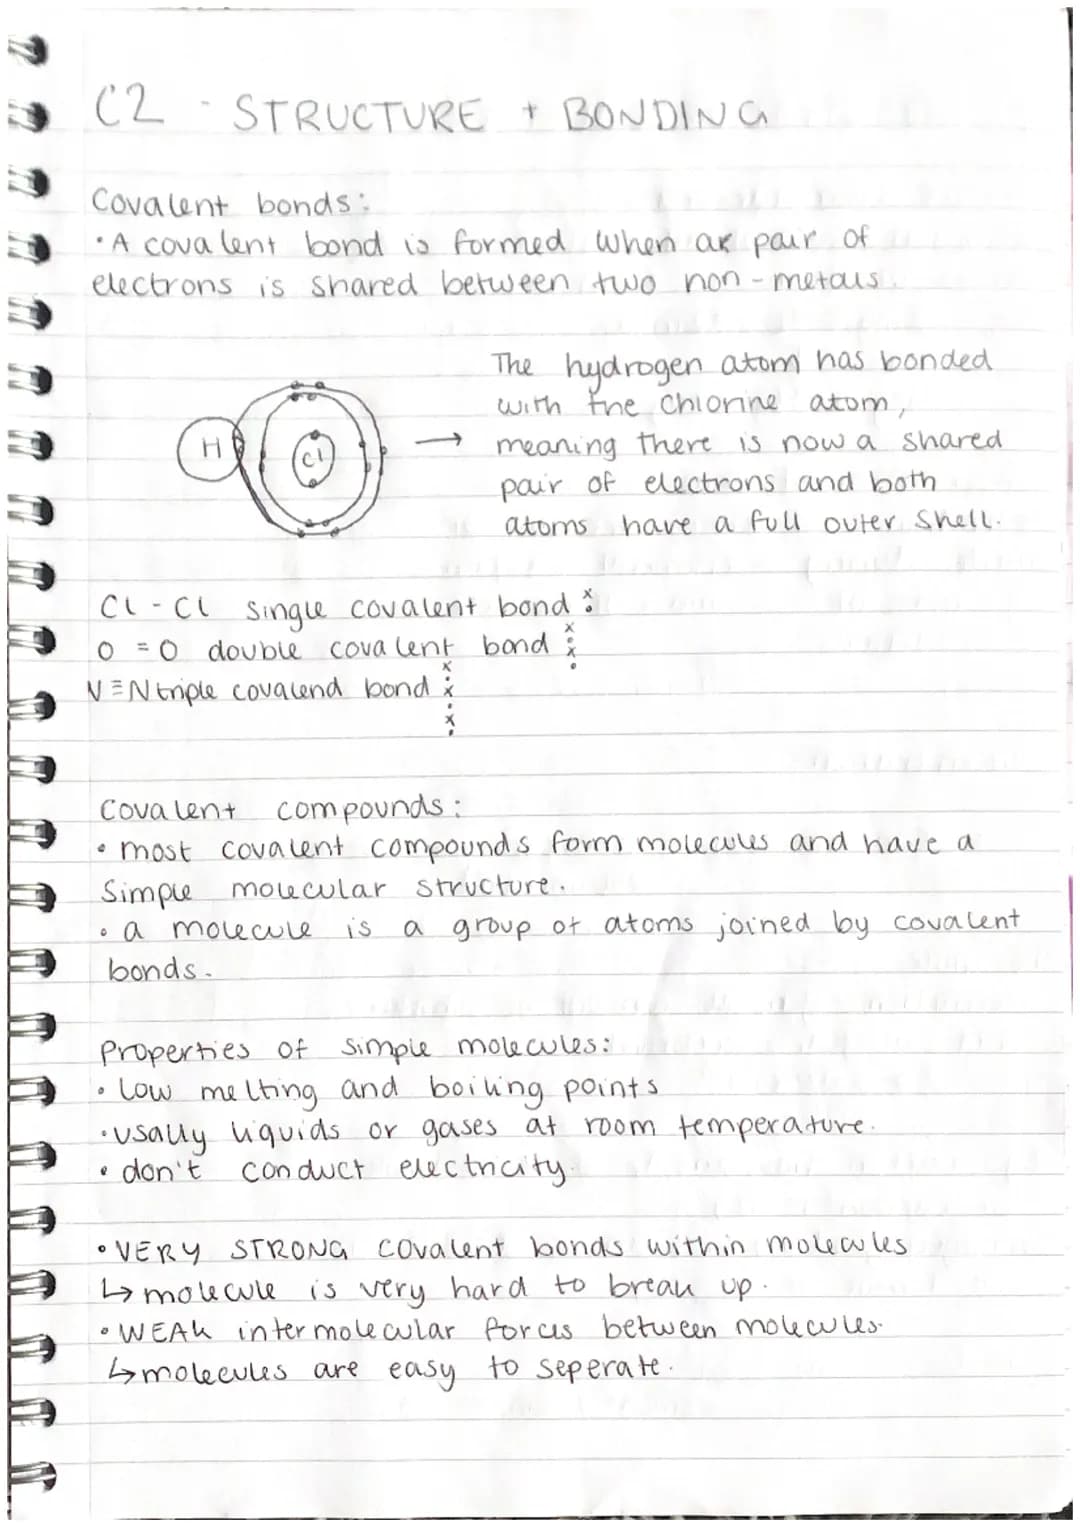 C2 - STRUCTURE + BONDING
Covalent bonds:
• A covalent bond is formed when a pair of
electrons is shared between two non-metals.
The hydrogen atom has bonded
with the chlorine atom,
H Cl → meaning there is now a shared
pair of electrons and both
atoms have a full outer shell.
Cl - Cl single covalent bond
O = O double covalent bond
N ≡ N triple covalend bond
Covalent compounds:
• most covalent compounds form molecules and have a
simple molecular structure.
• a molecule is a group of atoms joined by covalent
bonds.
Properties of simple molecules:
• low melting and boiling points
• usally liquids or gases at room temperature.
• don't conduct electricity.
• VERY STRONG covalent bonds within molecules
↳ molecule is very hard to break up.
• WEAK intermolecular forces between molecules.
↳ molecules are easy to seperate.